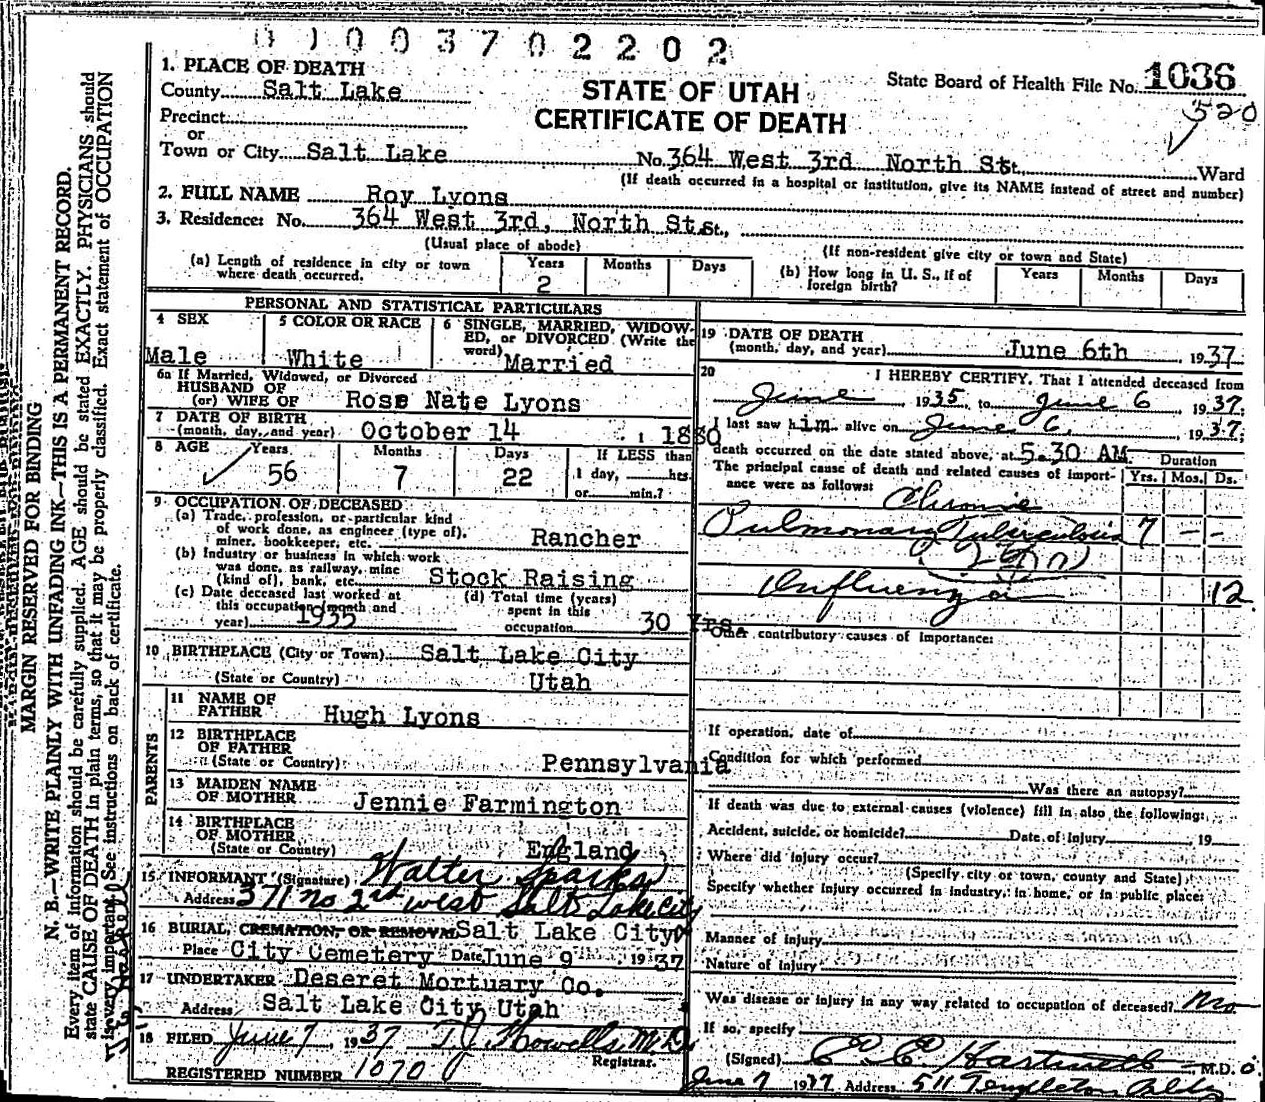 01003702202
1. PLACE OF DEATH
County Salt Lake
STATE OF UTAH
State Board of Health File No. 1036
CERTIFICATE OF DEATH
520
Precinct
or
Town or City Salt Lake No. 364 West 3rd North St. St., Ward
(If death occurred in a hospital or institution, give its NAME instead of street and number)
2. FULL NAME Roy Lyons
3. Residence: No. 364 West 3rd, North St. St.,
(Usual place of abode) (If non-resident give city or town and State)
(a) Length of residence in city or town where death occurred. Years 2 Months Days
(b) How long in U. S., if of foreign birth? Years Months Days
PERSONAL AND STATISTICAL PARTICULARS
4 SEX Male
5 COLOR OR RACE White
6 SINGLE, MARRIED, WIDOWED, or DIVORCED (Write the word) Married
6a If Married, Widowed, or Divorced
HUSBAND OF
(or) WIFE OF Rose Nate Lyons
7 DATE OF BIRTH
(month, day, and year) October 14, 1880
8 AGE Years 56 Months 7 Days 22
If LESS than
1 day, hrs.
or min.?
9 OCCUPATION OF DECEASED
(a) Trade, profession, or particular kind
of work done, as engineer (type of),
miner, bookkeeper, etc. Rancher
(b) Industry or business in which work
was done, as railway, mine
(kind of), bank, etc. Stock Raising
(c) Date deceased last worked at
this occupation (month and
year) 1935
(d) Total time (years)
spent in this
occupation 30 Yrs.
10 BIRTHPLACE (City or Town) Salt Lake City
(State or Country) Utah
PARENTS
11 NAME OF
FATHER Hugh Lyons
12 BIRTHPLACE
OF FATHER
(State or Country) Pennsylvania
13 MAIDEN NAME
OF MOTHER Jennie Farmington
14 BIRTHPLACE
OF MOTHER
(State or Country) England
15 INFORMANT (Signature) Walter Sparks
Address 371 no 2nd west Salt Lake City
16 BURIAL, CREMATION, OR REMOVAL Salt Lake City
Place City Cemetery Date June 9 1937
17 UNDERTAKER Deseret Mortuary Co.
Address Salt Lake City Utah
18 FILED June 7, 1937 T. J. Howells M.D.
Registrar.
REGISTERED NUMBER 1070
19 DATE OF DEATH
(month, day, and year) June 6th, 1937
20 I HEREBY CERTIFY, That I attended deceased from
June 1935, to June 6 1937;
I last saw him alive on June 6, 1937;
death occurred on the date stated above, at 5:30 AM.
Duration
The principal cause of death and related causes of importance were as follows: Yrs. Mos. Ds.
Chronic
Pulmonary Tuberculosis 7 - -
Influenza 12
Other contributory causes of importance:
If operation, date of
Condition for which performed
Was there an autopsy?
If death was due to external causes (violence) fill in also the following:
Accident, suicide, or homicide? Date of injury , 19
Where did injury occur?
(Specify city or town, county and State)
Specify whether injury occurred in industry, in home, or in public place:
Manner of injury
Nature of injury
Was disease or injury in any way related to occupation of deceased? No
If so, specify
(Signed) Hartwell M.D.
June 7 1937 Address 511 Templeton Bldg
MARGIN RESERVED FOR BINDING
N. B.—WRITE PLAINLY WITH UNFADING INK—THIS IS A PERMANENT RECORD.
Every item of information should be carefully supplied. AGE should be stated EXACTLY. PHYSICIANS should
state CAUSE OF DEATH in plain terms, so that it may be properly classified. Exact statement of OCCUPATION
is very important. See instructions on back of certificate.